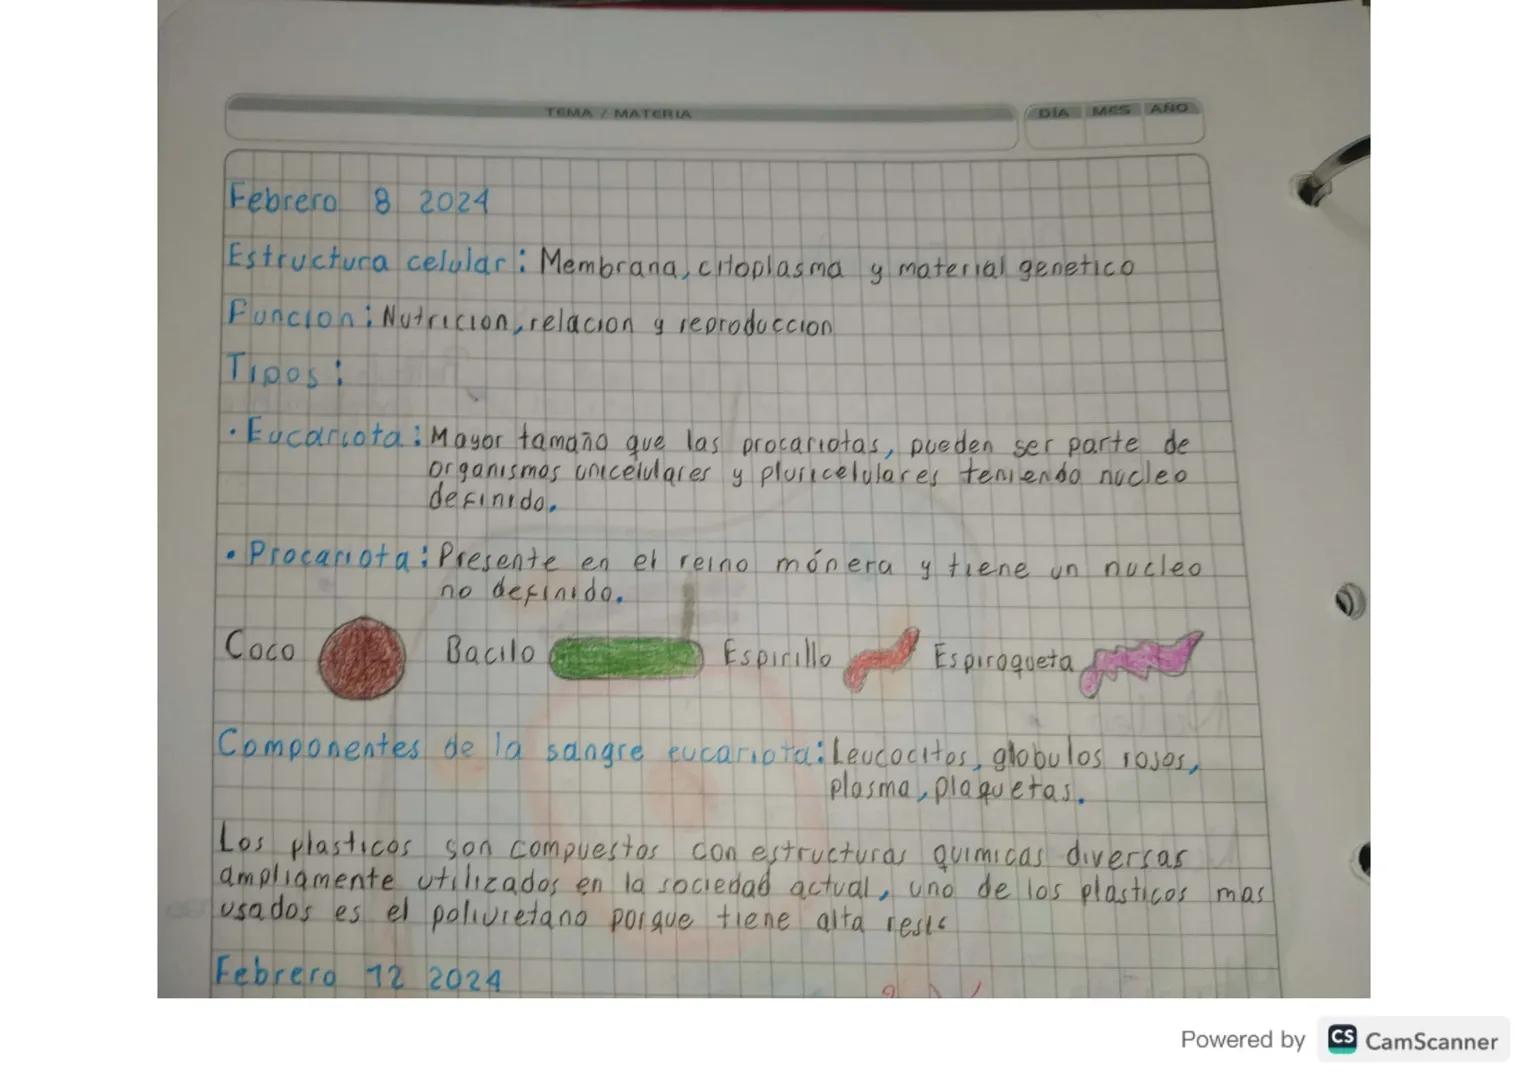 TEMA / MATERIA
DÍA MES AÑO
Febrero 8 2024
Estructura celular: Membrana, citoplasma y material genetico
Funcion: Nutricion, relacion y reproduccion
Tipos:
• Eucariota: Mayor tamaño que las procariotas, pueden ser parte de
organismos unicelulares y pluricelulares teniendo nucleo
definido.
• Procariota: Presente en el reino mónera y tiene un nucleo
no definido.
Coco Bacilo Espirillo Espiroqueta
Componentes de la sangre eucariota: Leucocitos, globulos rojos,
plasma, plaquetas.
Los plasticos son compuestos con estructuras quimicas diversas
ampliamente utilizados en la sociedad actual, uno de los plasticos mas
usados es el poliuretano porque tiene alta resis
Febrero 12 2024
Powered by CS CamScanner